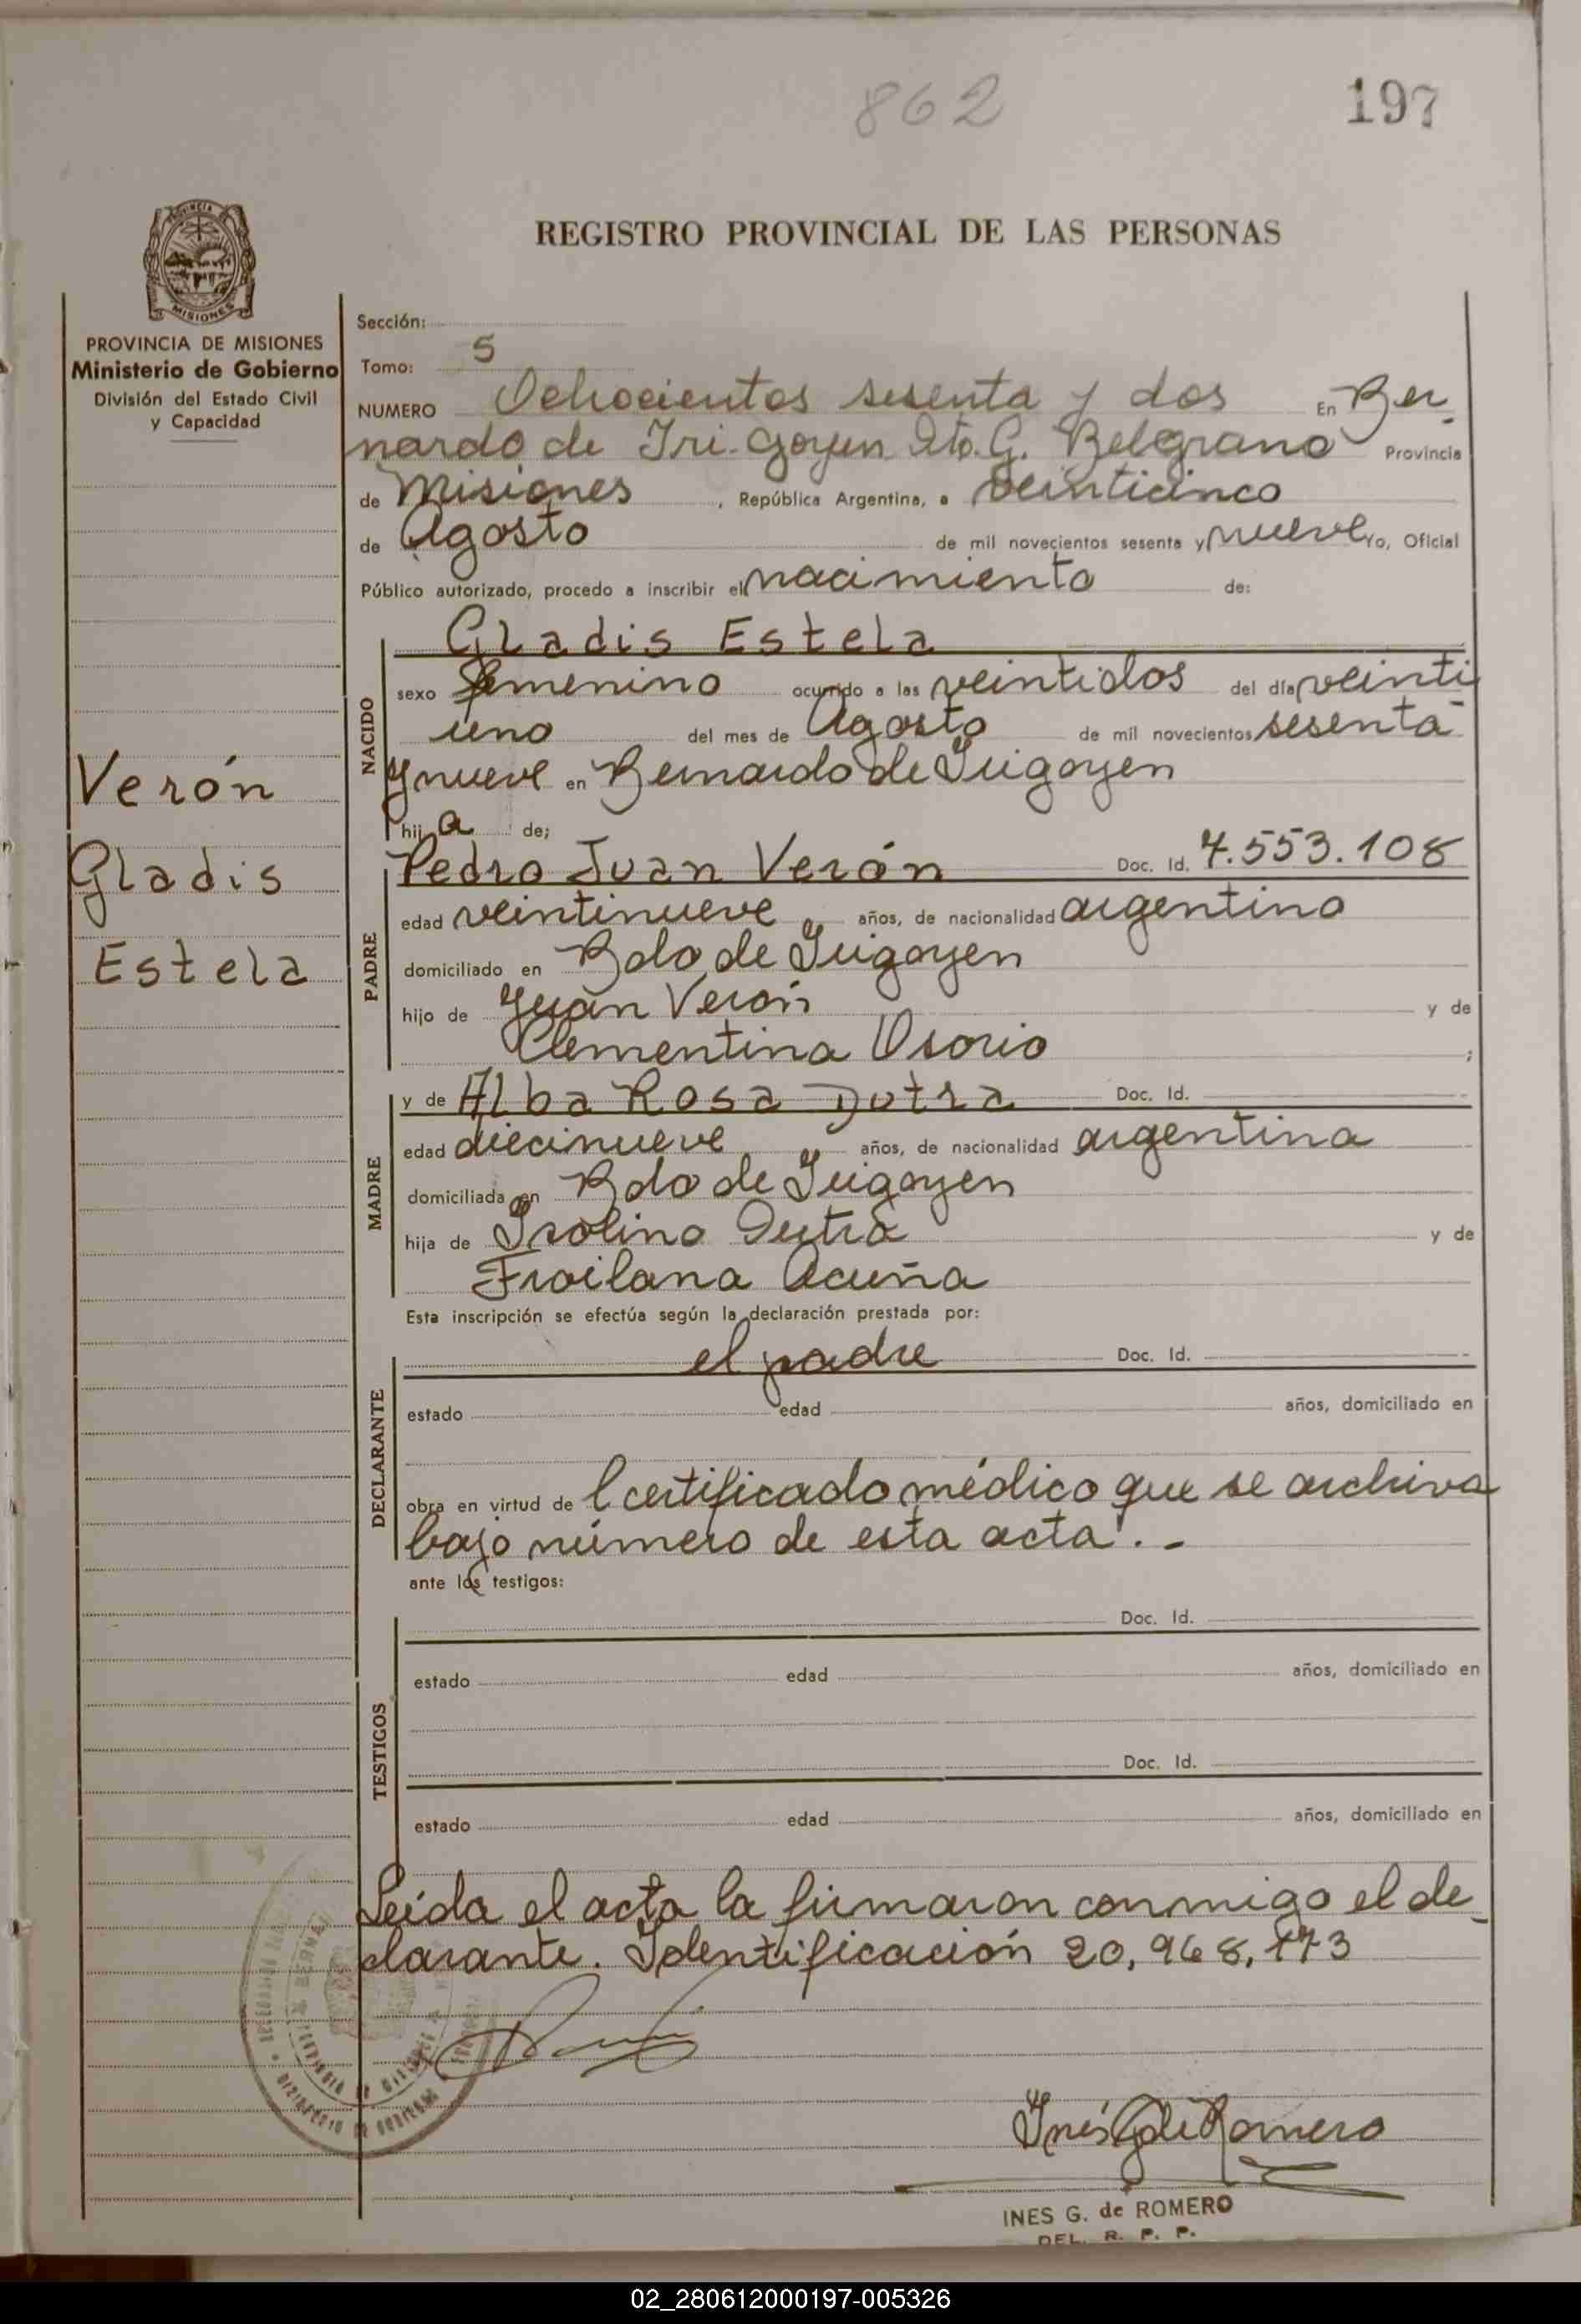 862
197
REGISTRO PROVINCIAL DE LAS PERSONAS
PROVINCIA MISIONES
PROVINCIA DE MISIONES
Ministerio de Gobierno
División del Estado Civil
y Capacidad
Verón
Gladis
Estela
Sección:
Tomo: 5
NUMERO Ochocientos sesenta y dos En Ber-
nardo de Iri-goyen Dto. G. Belgrano Provincia
de Misiones, República Argentina, a veinticinco
de Agosto de mil novecientos sesenta y nueve Yo, Oficial
Público autorizado, procedo a inscribir el nacimiento de:
NACIDO
Gladis Estela
sexo femenino ocurrido a las veintidos del día veinti
uno del mes de Agosto de mil novecientos sesenta
y nueve en Bernardo de Irigoyen
hij a de;
PADRE
Pedro Juan Verón Doc. Id. 7.553.108
edad veintinueve años, de nacionalidad argentino
domiciliado en Bdo de Irigoyen
hijo de Juan Verón y de
Clementina Osorio ;
MADRE
y de Alba Rosa Dutra Doc. Id.
edad diecinueve años, de nacionalidad argentina
domiciliada en Bdo de Irigoyen
hija de Isolino Dutra y de
Froilana Acuña
Esta inscripción se efectúa según la declaración prestada por:
DECLARANTE
el padre Doc. Id.
estado edad años, domiciliado en
obra en virtud de l certificado médico que se archiva
bajo número de esta acta.-
ante los testigos:
TESTIGOS
Doc. Id.
estado edad años, domiciliado en
Doc. Id.
estado edad años, domiciliado en
Leída el acta la firmaron conmigo el de-
clarante. Identificación 20,968,173
Inés G de Romero
INES G. de ROMERO
DEL. R. P. P.
02_280612000197-005326